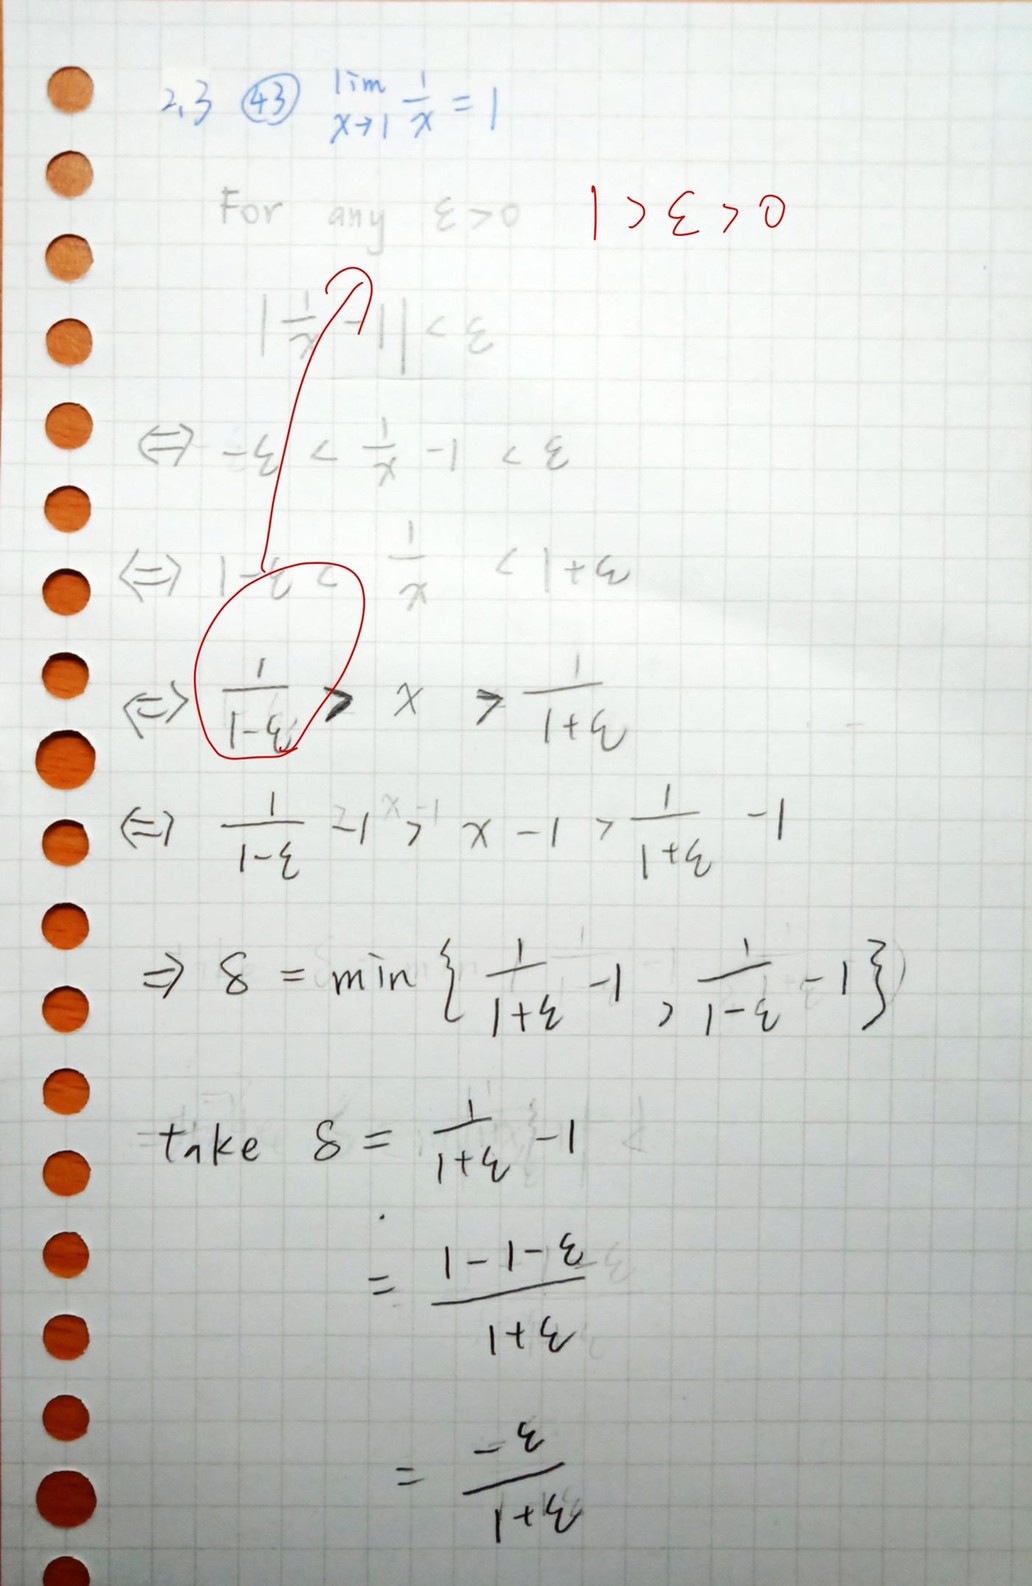 2.3 ㊸ lim x→1 1/x = 1
For any ε>0 1 > ε > 0
|1/x - 1| < ε
⇔ -ε < 1/x - 1 < ε
⇔ 1-ε < 1/x < 1+ε
⇔ 1/(1-ε) > x > 1/(1+ε)
⇔ 1/(1-ε) - 1 > x - 1 > 1/(1+ε) - 1
⇒ δ = min { 1/(1+ε) - 1 , 1/(1-ε) - 1 }
take δ = 1/(1+ε) - 1
= (1-1-ε)/(1+ε)
= -ε/(1+ε)